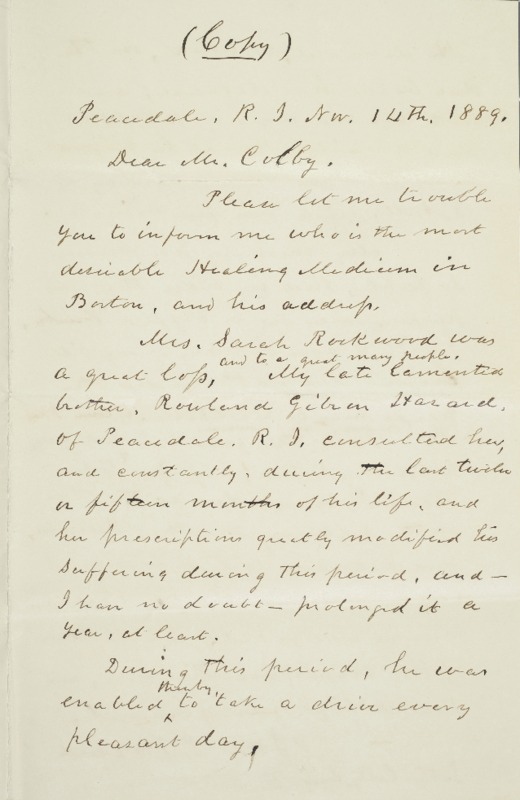 (Copy)
Peacedale, R. I. Nov. 14th, 1889.
Dear Mr. Colby.
Please let me trouble
you to inform me who is the most
desirable Healing Medium in
Boston, and his address.
Mrs. Sarah Rockwood was
and to a great many people.
a great loss, My late lamented
brother, Rowland Gibson Hazard,
of Peacedale. R. I. consulted her,
and constantly, during the last twelve
or fifteen months of his life, and
her prescriptions greatly modified his
Suffering during this period, and —
I have no doubt — prolonged it a
year, at least.
During this period, he was
thereby,
enabled to take a drive every
pleasant day,